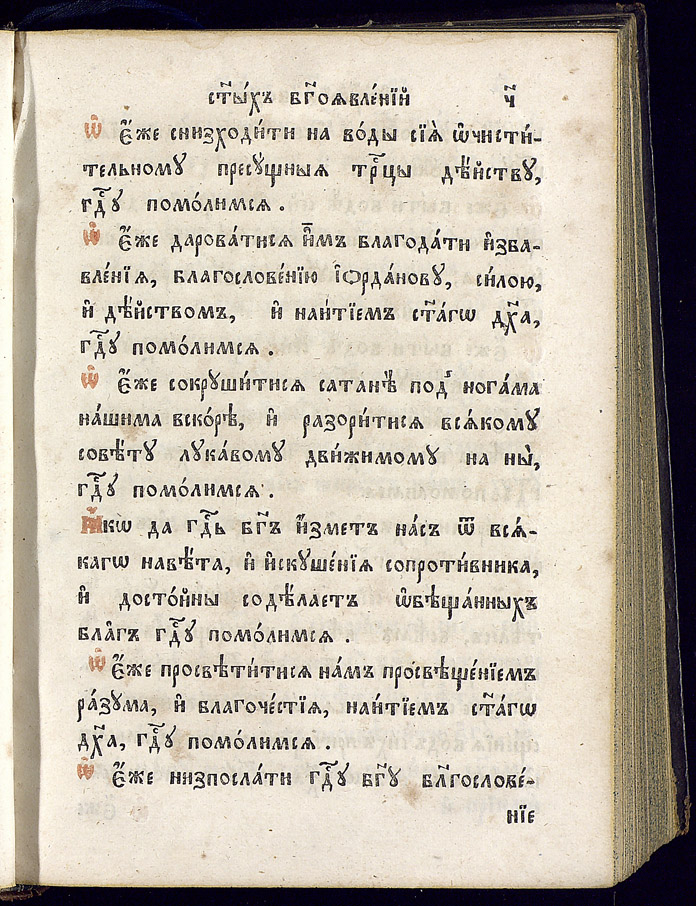 ст҃ы́хъ бг҃оѧвле́нїй ч҃
Ѡ҆ є҆́же снизходи́ти на во́ды сїѧ̀ ѡ҆чисти́-
тельному пресущныѧ трⷪ҇цы дѣ́йству,
гдⷭ҇у помо́лимсѧ .
Ѡ҆ є҆́же дарова́тисѧ и҆̀мъ благода́ти и҆зба-
вле́нїѧ, благослове́нїю і҆ѻрда́нову, си́лою,
и҆ дѣ́йствомъ, и҆ наи́тїемъ ст҃а́гѡ дх҃а,
гдⷭ҇у помо́лимсѧ .
Ѡ҆ є҆́же сокруши́тисѧ сатанѣ̀ под̾ нога́ма
на́шима вско́рѣ, и҆ разори́тисѧ всѧ́кому
совѣ́ту лука́вому дви́жимому на ны̀,
гдⷭ҇у помо́лимсѧ .
Ꙗ҆́кѡ да гдⷭ҇ь бг҃ъ и҆́зметъ на́съ ѿ всѧ́-
кагѡ навѣ́та, и҆ и҆скуше́нїѧ сопроти́вника,
и҆ досто́йны содѣ́лаетъ ѡ҆бѣща́нныхъ
бл҃гъ гдⷭ҇у помо́лимсѧ .
Ѡ҆ є҆́же просвѣти́тисѧ на́мъ просвѣще́нїемъ
ра́зума, и҆ благоче́стїѧ, наи́тїемъ ст҃а́гѡ
дх҃а, гдⷭ҇у помо́лимсѧ .
Ѡ҆ є҆́же низпосла́ти гдⷭ҇у бг҃у бл҃гослове́-
нїе